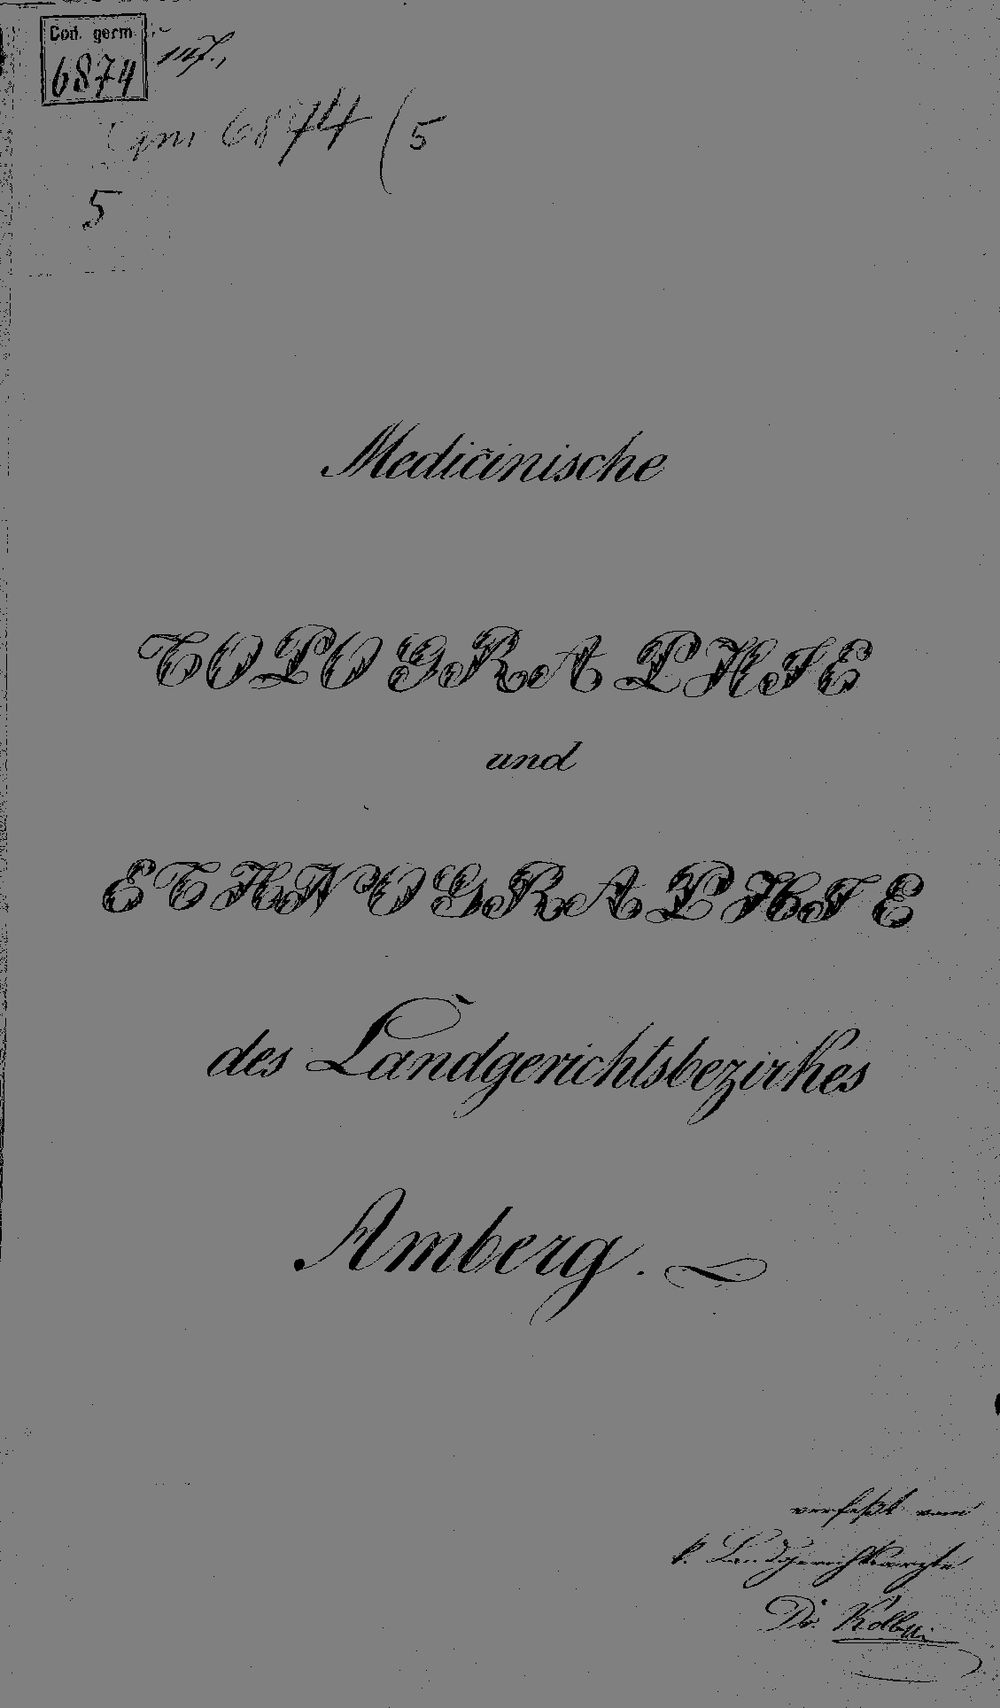 Cod. germ.
6874
Cgm 6874 (5
5
Medicinische
TOPOGRAPHIE
und
ETHNOGRAPHIE
des Landgerichtsbezirkes
Amberg.
verfaßt vom
k. Landgerichtsarzte
Dr.